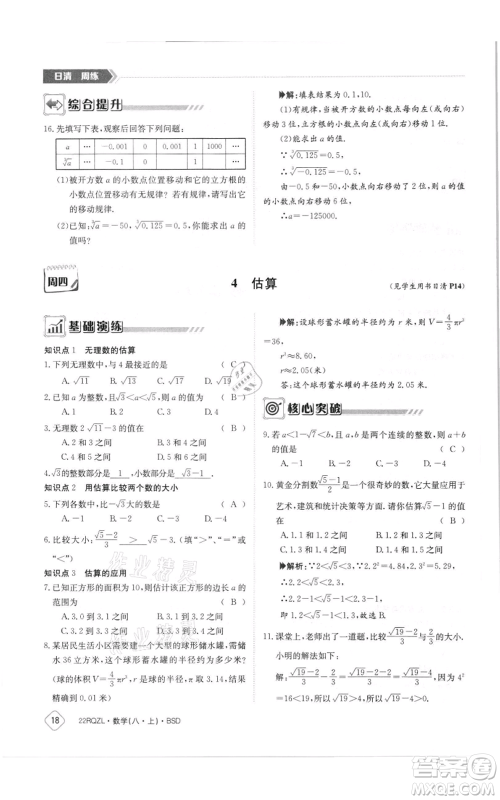 日清 周练
综合提升
16. 先填写下表，观察后回答下列问题：
a … -0.001 0 0.001 1 1000 …
∛a … -0.1 0 1 …
(1)被开方数a的小数点位置移动和它的立方根的
小数点位置移动有无规律？若有规律，请写出它
的移动规律.
(2)已知：∛a=-50，∛0.125=0.5，你能求出a的
值吗？
解：填表结果为0.1，10.
(1)有规律，当被开方数的小数点每向左(或向右)
移动3位，立方根的小数点向左(或向右)移动1位.
(2)能求出a的值.
∵∛0.125=0.5，
∴-∛0.125=-0.5，
由-0.5和-50，小数点向右移动了2位，则a的值
的小数点向右移动6位.
∴a=-125000.
周四
4 估算
(见学生用书日清P14)
基础演练
知识点1 无理数的估算
1. 下列无理数中，与4最接近的是 (C)
A. √11 B. √13 C. √17 D. √19
2. 已知a为整数，且√3<a<√5，则a等于 (B)
A. 1 B. 2 C. 3 D. 4
3. 无理数2√11-3在 (B)
A. 2和3之间 B. 3和4之间
C. 4和5之间 D. 5和6之间
4. √3的整数部分是 1 ，小数部分是 √3-1 .
知识点2 用估算比较两个数的大小
5. 下列各数中，比-√3大的数是 (A)
A. -1 B. -2 C. -3 D. -4
6. 比较大小：(√5-1)/2 > 1/2.(填“>”、“<”或“=”)
知识点3 估算的应用
7. 已知正方形的面积是10，估计该正方形边长a的
范围为 (B)
A. 3.0，3.1之间 B. 3.1，3.2之间
C. 3.2，3.3之间 D. 3.3，3.4之间
8. 某居民生活小区需要建一个大型的球形储水罐，需储
水36立方米，那么这个球形蓄水罐的半径约为多少？
(球的体积V=4/3πr³，r为球的半径，π取3.14，结果
精确到0.01米)
解：设球形蓄水罐的半径约为r米，则有V=4/3πr³
=36，
r³≈8.60，
r≈2.05(米)
答：这个球形蓄水罐的半径约为2.05米.
核心突破
9. 若a<1-√7<b，且a与b为两个连续的整数，则a为
(B)
A. -1 B. -2 C. -3 D. -4
10. 黄金分割数(√5-1)/2是一个很奇妙的数，它大量应用于
艺术、建筑和统计决策等方面，请你估算√5-1的值
(B)
A. 1.1和1.2之间 B. 1.2和1.3之间
C. 1.3和1.4之间 D. 1.4和1.5之间
解析：∵2.2²=4.84，2.3²=5.29，
∴2.2<√5<2.3，
∴2.2-1<√5-1<2.3-1，
即1.2<√5-1<1.3.
所以选B.
11. 课堂上，老师出了一道题，比较(√19-2)/3与2/3的大小.
小明的解法如下：
解：(√19-2)/3-2/3=(√19-2-2)/3=(√19-4)/3，
∵16<19，∴4<√19，∴√19-4>0.
18 22RQZL·数学(八·上)·BSD